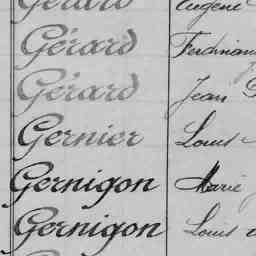 Gérard Eugène
Gérard Ferdinand
Gérard Jean
Gernier Louis
Gernigon Marie
Gernigon Louis